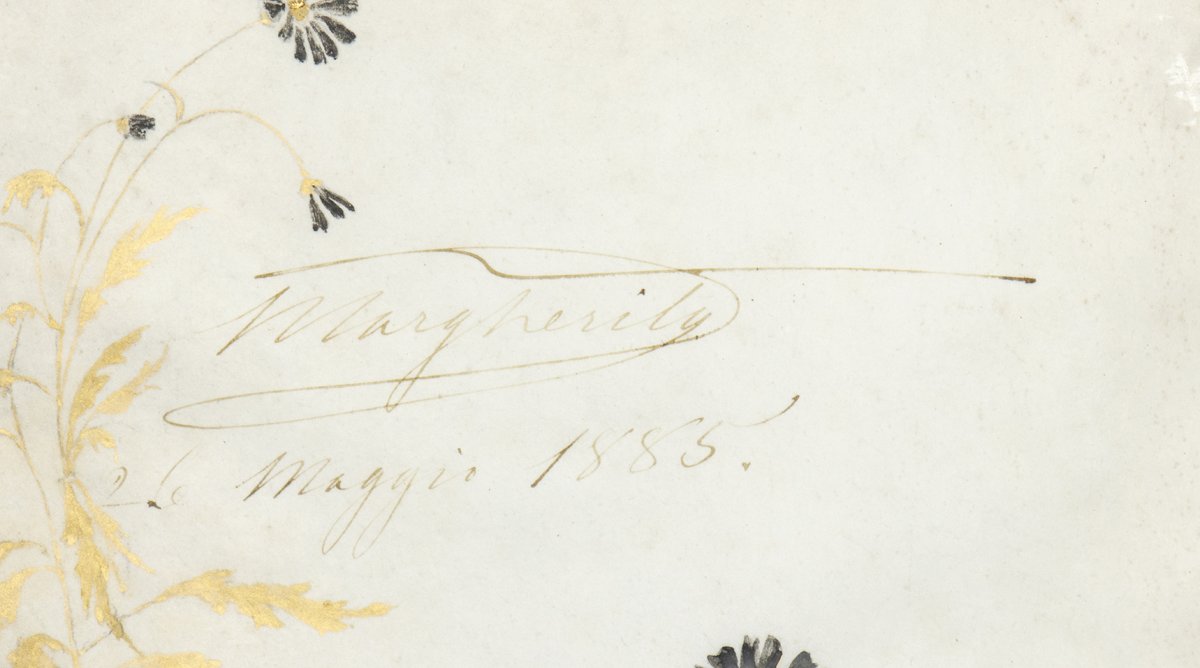 Margherita
26 Maggio 1885.